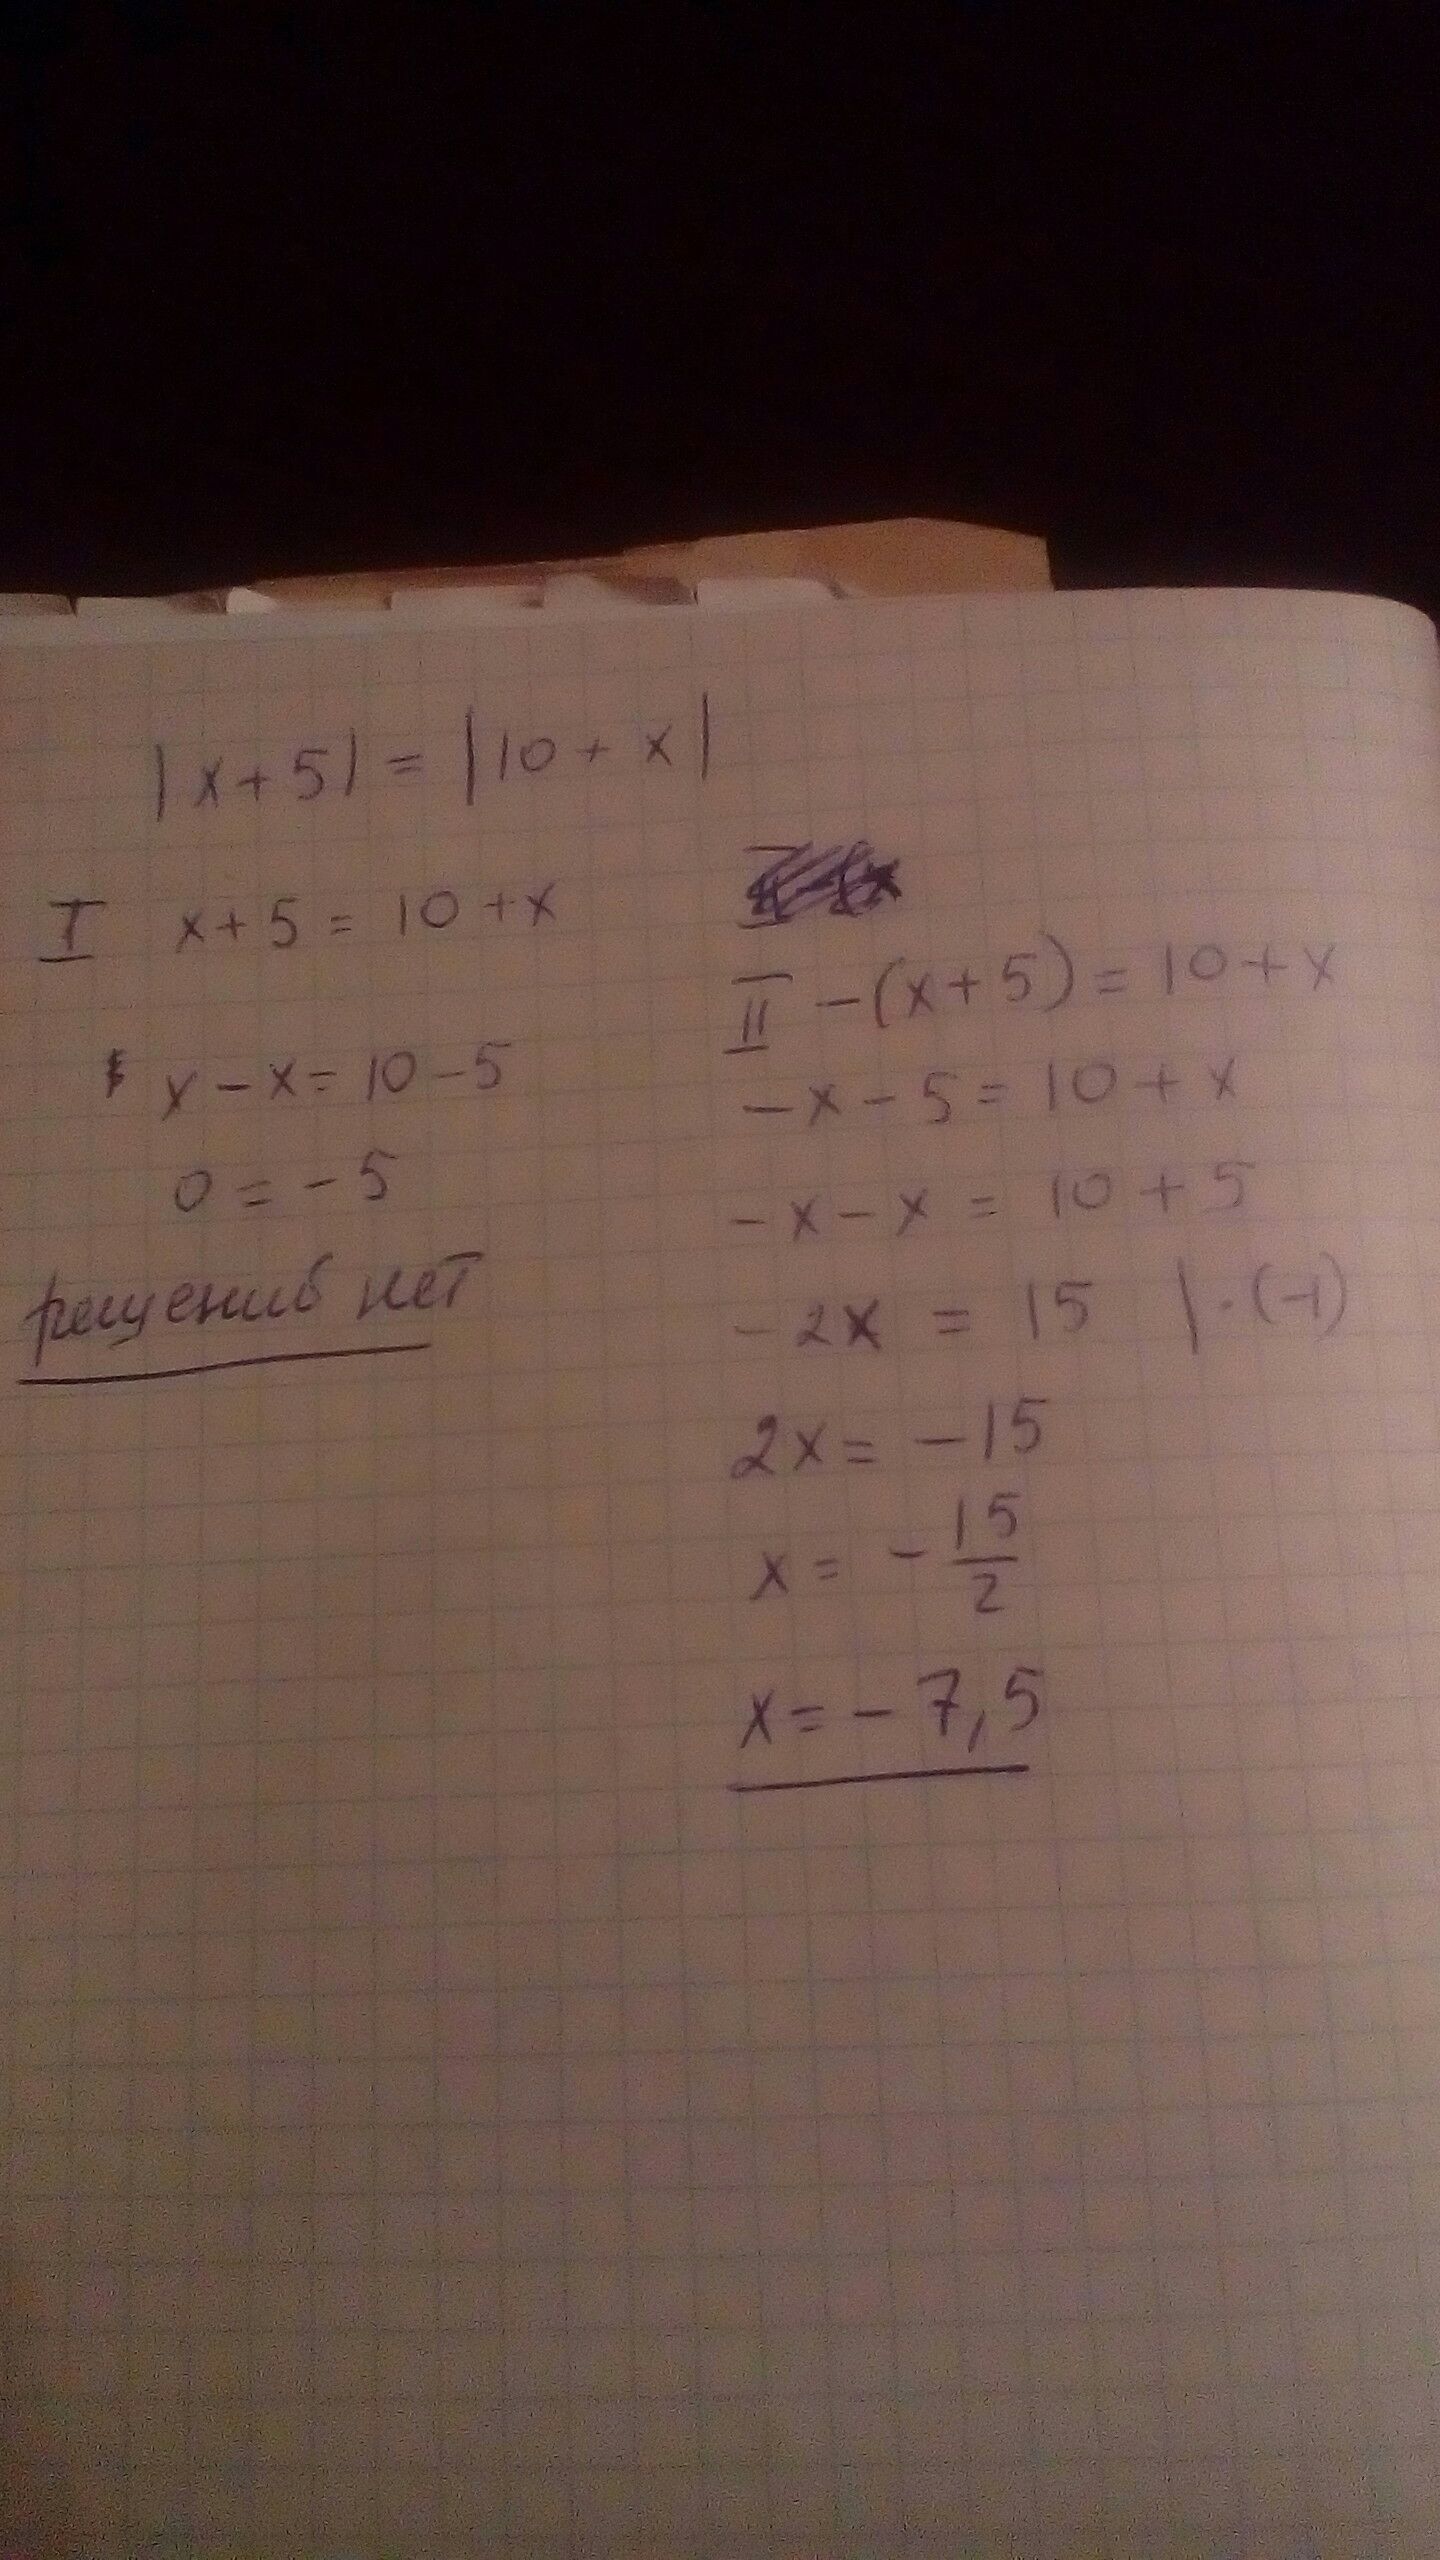 |x+5| = |10+x|
I x+5 = 10+x
x-x = 10-5
0 = -5
решений нет
II -(x+5) = 10+x
-x-5 = 10+x
-x-x = 10+5
-2x = 15 | ·(-1)
2x = -15
x = -15/2
x = -7,5